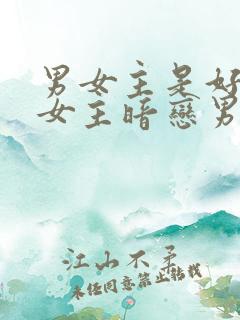 男女主是好
女主暗恋男
江山不柔
未经同意禁止转载